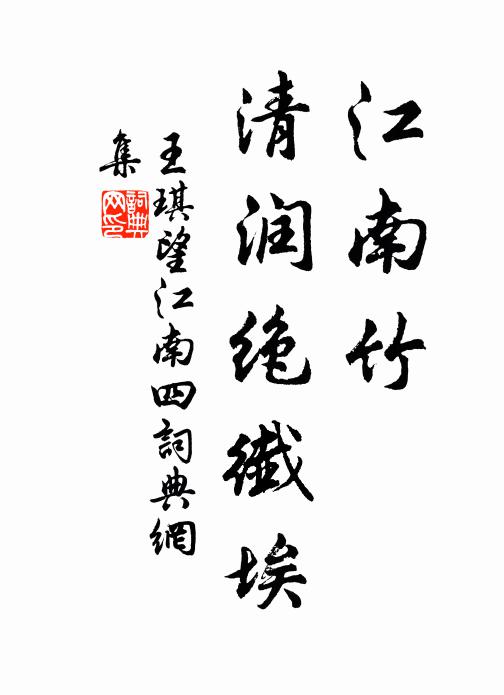 江南竹
清润绝纎埃
王琪望江南四詞典網
集
詞典网印